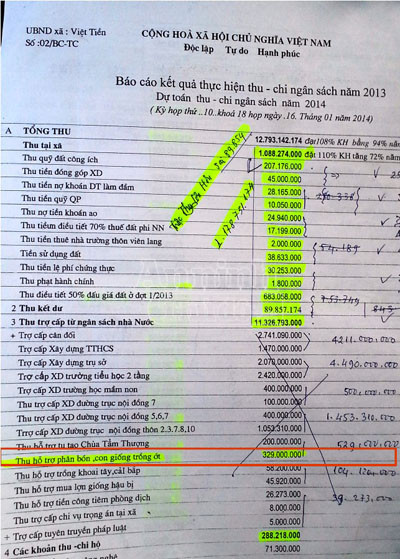 UBND xã : Việt Tiến
Số :02/BC-TC
CỘNG HOÀ XÃ HỘI CHỦ NGHĨA VIỆT NAM
Độc lập Tự do Hạnh phúc
Báo cáo kết quả thực hiện thu - chi ngân sách năm 2013
Dự toán thu - chi ngân sách năm 2014
( Kỳ họp thứ ..10..khoá 18 họp ngày .16. Tháng 01 năm 2014)
A TỔNG THU 12.793.142.174 đạt108% KH bằng 94% năm
Thu tại xã 1.088.274.000 đạt 110% KH tăng 72% năm
Thu quỹ đất công ích 207.176.000
Thu tiền đóng góp XD 45.000.000
Thu tiền nợ khoán DT làm đầm 28.165.000
Thu tiền quỹ QP 10.050.000
Thu nợ tiền khoán ao 24.940.000
Thu tiềm điều tiết 70% thuế đất phi NN 17.199.000
Thu tiền thuê nhà trường thôn viên lang 2.000.000
Tiền sử dụng đất 38.633.000
Thu tiền lệ phí chứng thực 30.253.000
Thu phạt hành chính 1.800.000
Thu điều tiết 50% đấu giá đất ở đợt 1/2013 683.058.000
2 Thu kết dư 89.857.174
3 Thu trợ cấp từ ngân sách nhà Nước 11.326.793.000
+ Trợ cấp cân đối 2.741.090.000
Trợ cấp Xây dựng TTHCS 1.470.000.000 4211.000.000
Trợ cấp Xây dựng trụ sở 2.070.000.000
Trợ cấp XD trường tiểu học 2 tầng 2.420.000.000 4.490.000.000
Trợ cấp XD trường học mầm non 400.000.000
Trợ cấp XD đường trục nội đồng 7 100.000.000 500.000.000
Trợ cấp XD đường trục nội đồng 5,6,7 400.000.000
Trrợ cấp XD đường trục nội đồng thôn 2.3.7.8,10 1.053.310.000 1.453.310.000
Thu hỗ trợ tu tạo Chùa Tầm Thượng 200.000.000
Thu hỗ trợ phân bón ,con giống trồng ớt 329.000.000 529.000.000
Thu hỗ trợ trồng khoai tây,cải bắp 58.200.000
Thu hỗ trợ mua lợn giống hậu bị 45.920.000
Thu hỗ trợ tiền công tiêm phòng dịch 26.273.000
Thu trợ cấp chi vụ trọng án tại xã 8.000.000 39.273.000
+ Trợ cấp tuyên truyền pháp luật 5.000.000
288.218.000
4 Các khoản thu -chi hộ 71.300.000